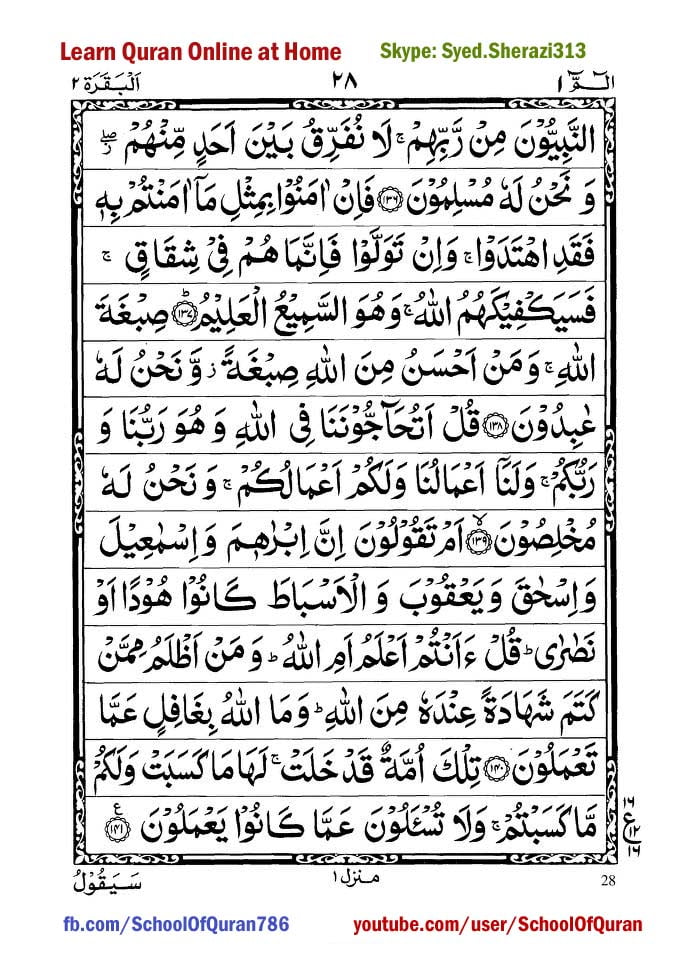 Learn Quran Online at Home Skype: Syed.Sherazi313
الٓمّٓ ۱ ۲۸ اَلْبَقَرَة ۲
النَّبِيُّوْنَ مِنْ رَّبِّهِمْ ۚ لَا نُفَرِّقُ بَيْنَ اَحَدٍ مِّنْهُمْ ۖ ز
وَ نَحْنُ لَهٗ مُسْلِمُوْنَ ﴿۱۳۶﴾ فَاِنْ اٰمَنُوْا بِمِثْلِ مَاۤ اٰمَنْتُمْ بِهٖ
فَقَدِ اهْتَدَوْا ۚ وَاِنْ تَوَلَّوْا فَاِنَّمَا هُمْ فِيْ شِقَاقٍ ۚ
فَسَيَكْفِيْكَهُمُ اللّٰهُ ۚ وَهُوَ السَّمِيْعُ الْعَلِيْمُ ؕ﴿۱۳۷﴾ صِبْغَةَ
اللّٰهِ ۚ وَمَنْ اَحْسَنُ مِنَ اللّٰهِ صِبْغَةً ز وَّ نَحْنُ لَهٗ
عٰبِدُوْنَ ﴿۱۳۸﴾ قُلْ اَتُحَآجُّوْنَنَا فِي اللّٰهِ وَ هُوَ رَبُّنَا وَ
رَبُّكُمْ ۚ وَلَنَاۤ اَعْمَالُنَا وَلَكُمْ اَعْمَالُكُمْ ۚ وَ نَحْنُ لَهٗ
مُخْلِصُوْنَ ۙ﴿۱۳۹﴾ اَمْ تَقُوْلُوْنَ اِنَّ اِبْرٰهٖمَ وَ اِسْمٰعِيْلَ
وَ اِسْحٰقَ وَ يَعْقُوْبَ وَ الْاَسْبَاطَ كَانُوْا هُوْدًا اَوْ
نَصٰرٰى ؕ قُلْ ءَاَنْتُمْ اَعْلَمُ اَمِ اللّٰهُ ؕ وَ مَنْ اَظْلَمُ مِمَّنْ
كَتَمَ شَهَادَةً عِنْدَهٗ مِنَ اللّٰهِ ؕ وَمَا اللّٰهُ بِغَافِلٍ عَمَّا
تَعْمَلُوْنَ ﴿۱۴۰﴾ تِلْكَ اُمَّةٌ قَدْ خَلَتْ ۚ لَهَا مَا كَسَبَتْ وَلَكُمْ
مَّا كَسَبْتُمْ ۚ وَلَا تُسْـَٔلُوْنَ عَمَّا كَانُوْا يَعْمَلُوْنَ ﴿۱۴۱﴾ ع
۱۶ ع ۱۲ ۱۶
سَيَقُوْلُ منزل ۱ 28
fb.com/SchoolOfQuran786 youtube.com/user/SchoolOfQuran